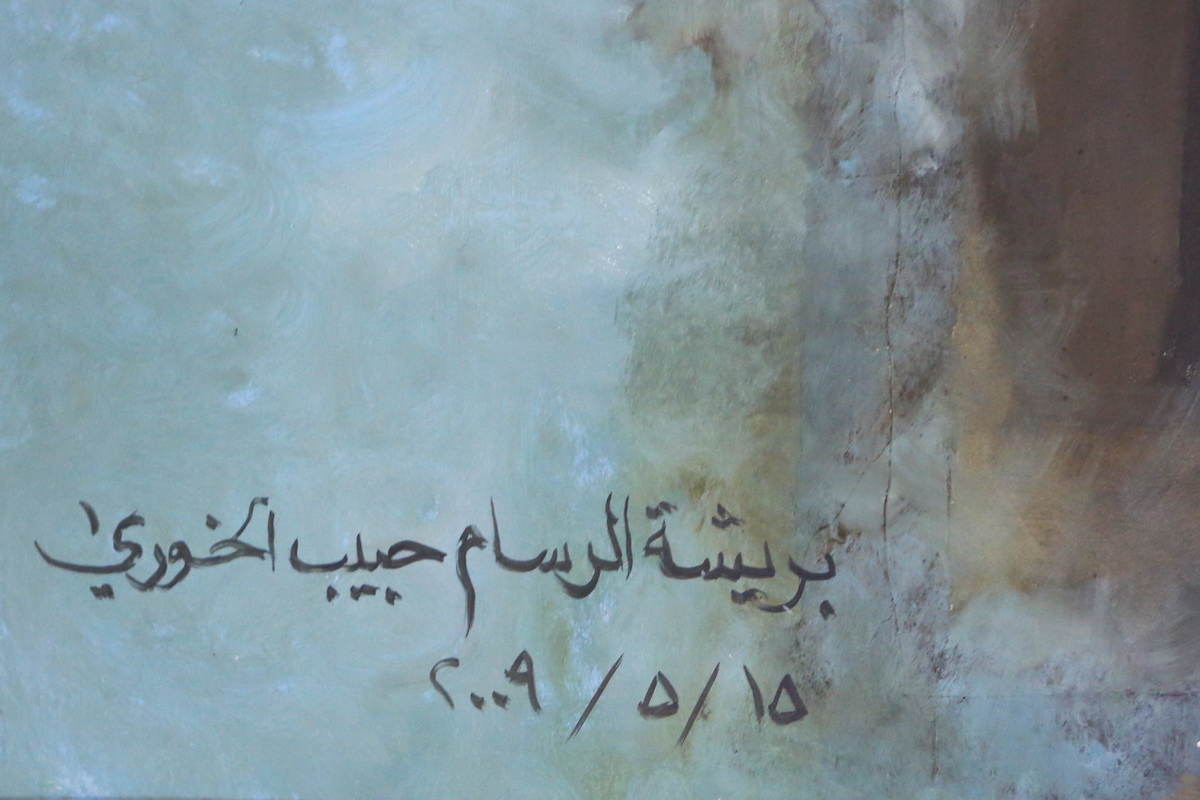 بريشة الرسام حبيب الخوري
١٥ / ٥ / ٢٠٠٩